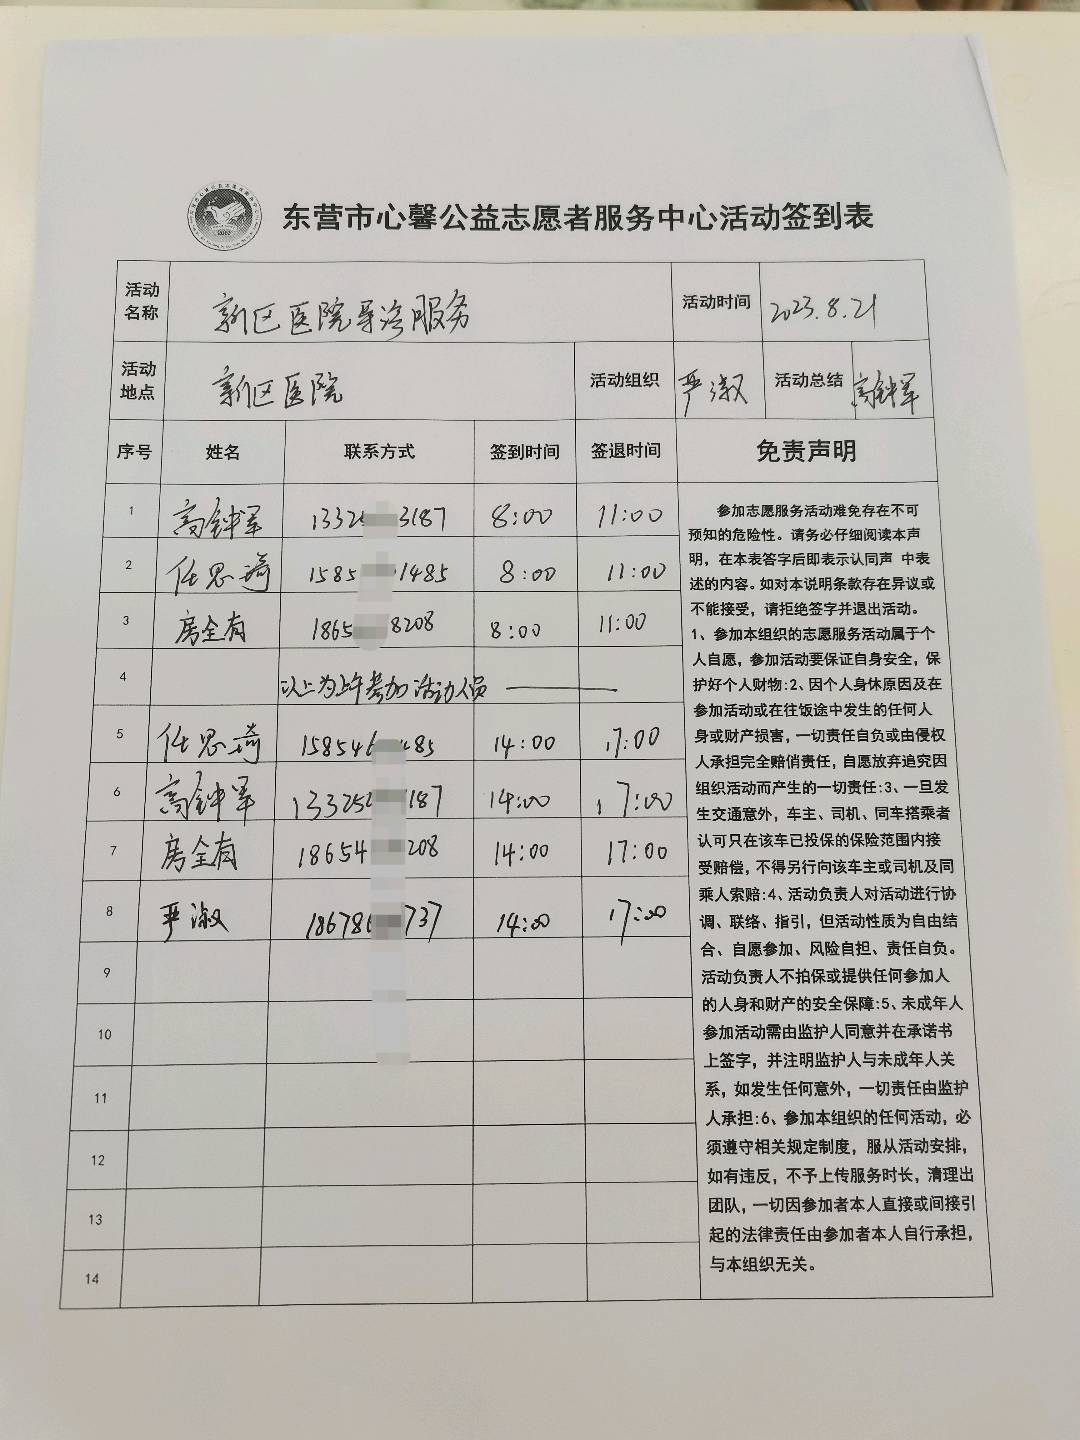 东营市心馨公益志愿者服务中心活动签到表
活动名称 新区医院导诊服务 活动时间 2023.8.21
活动地点 新区医院 活动组织 严淑 活动总结 高钟军
序号 姓名 联系方式 签到时间 签退时间 免责声明
1 高钟军 13325 3187 8:00 11:00
2 任思琦 1585 1485 8:00 11:00
3 房全有 1865 8208 8:00 11:00
4 以上为上午参加活动人员
5 任思琦 158546 485 14:00 17:00
6 高钟军 133252 187 14:00 17:00
7 房全有 18654 208 14:00 17:00
8 严淑 186786 737 14:00 17:00
9
10
11
12
13
14
参加志愿服务活动难免存在不可
预知的危险性。请务必仔细阅读本声
明，在本表答字后即表示认同声 中表
述的内容。如对本说明条款存在异议或
不能接受，请拒绝签字并退出活动。
1、参加本组织的志愿服务活动属于个
人自愿，参加活动要保证自身安全，保
护好个人财物:2、因个人身休原因及在
参加活动或在往饭途中发生的任何人
身或财产损害，一切责任自负或由侵权
人承担完全赔俏责任，自愿放弃追究因
组织活动而产生的一切责任:3、一旦发
生交通意外，车主、司机、同车搭乘者
认可只在该车已投保的保险范围内接
受赔偿，不得另行向该车主或司机及同
乘人索赔:4、活动负责人对活动进行协
调、联络、指引，但活动性质为自由结
合、自愿参加、风险自担、责任自负。
活动负责人不拍保或提供任何参加人
的人身和财产的安全保障:5、未成年人
参加活动需由监护人同意并在承诺书
上签字，并注明监护人与未成年人关
系，如发生任何意外，一切责任由监护
人承担:6、参加本组织的任何活动，必
须遵守相关规定制度，服从活动安排，
如有违反，不予上传服务时长，清理出
团队，一切因参加者本人直接或间接引
起的法律责任由参加者本人自行承担，
与本组织无关。